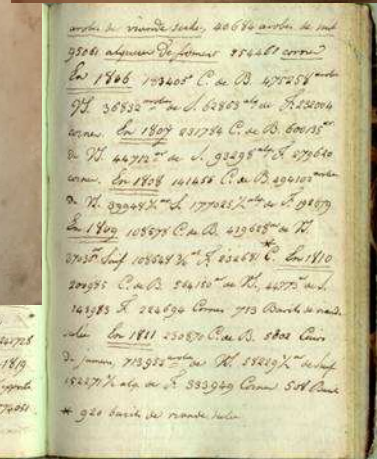 arobes de viande seche, 40684 arobes de suif
95061 alqueires De froment 254461 cornes
En 1806 183405 C. de B. 475258 arobes
V.S. 36832 arobes de S. 62863 alq. de F. 232004
cornes. En 1807 231784 C. de B. 600135 ar
de V.S. 44712 ar de S. 93295 alq. F. 279620
cornes. En 1808 141456 C. de B. 294102 arobes
de V.S. 39948 ½ ar S. 177025 ½ alq. de F. 192079
En 1809 108578 C. de B. 419658 ar de V.S.
ar Suif 108648 ¾ F. 232681 * C. En 1810
200985 C. de B. 564150 ar de V.S. 44773 ar de S.
143983 F. 224694 Cornes 713 Barils de viande
salée En 1811 230870 C. de B. 5802 Cuirs
de jument, 713952 arobes de V.S. 58229 ½ ar de Suif
152271 ½ alq. de F. 333949 Cornes 508 Barils
* 920 barils de viande salée
24728
1819
77405